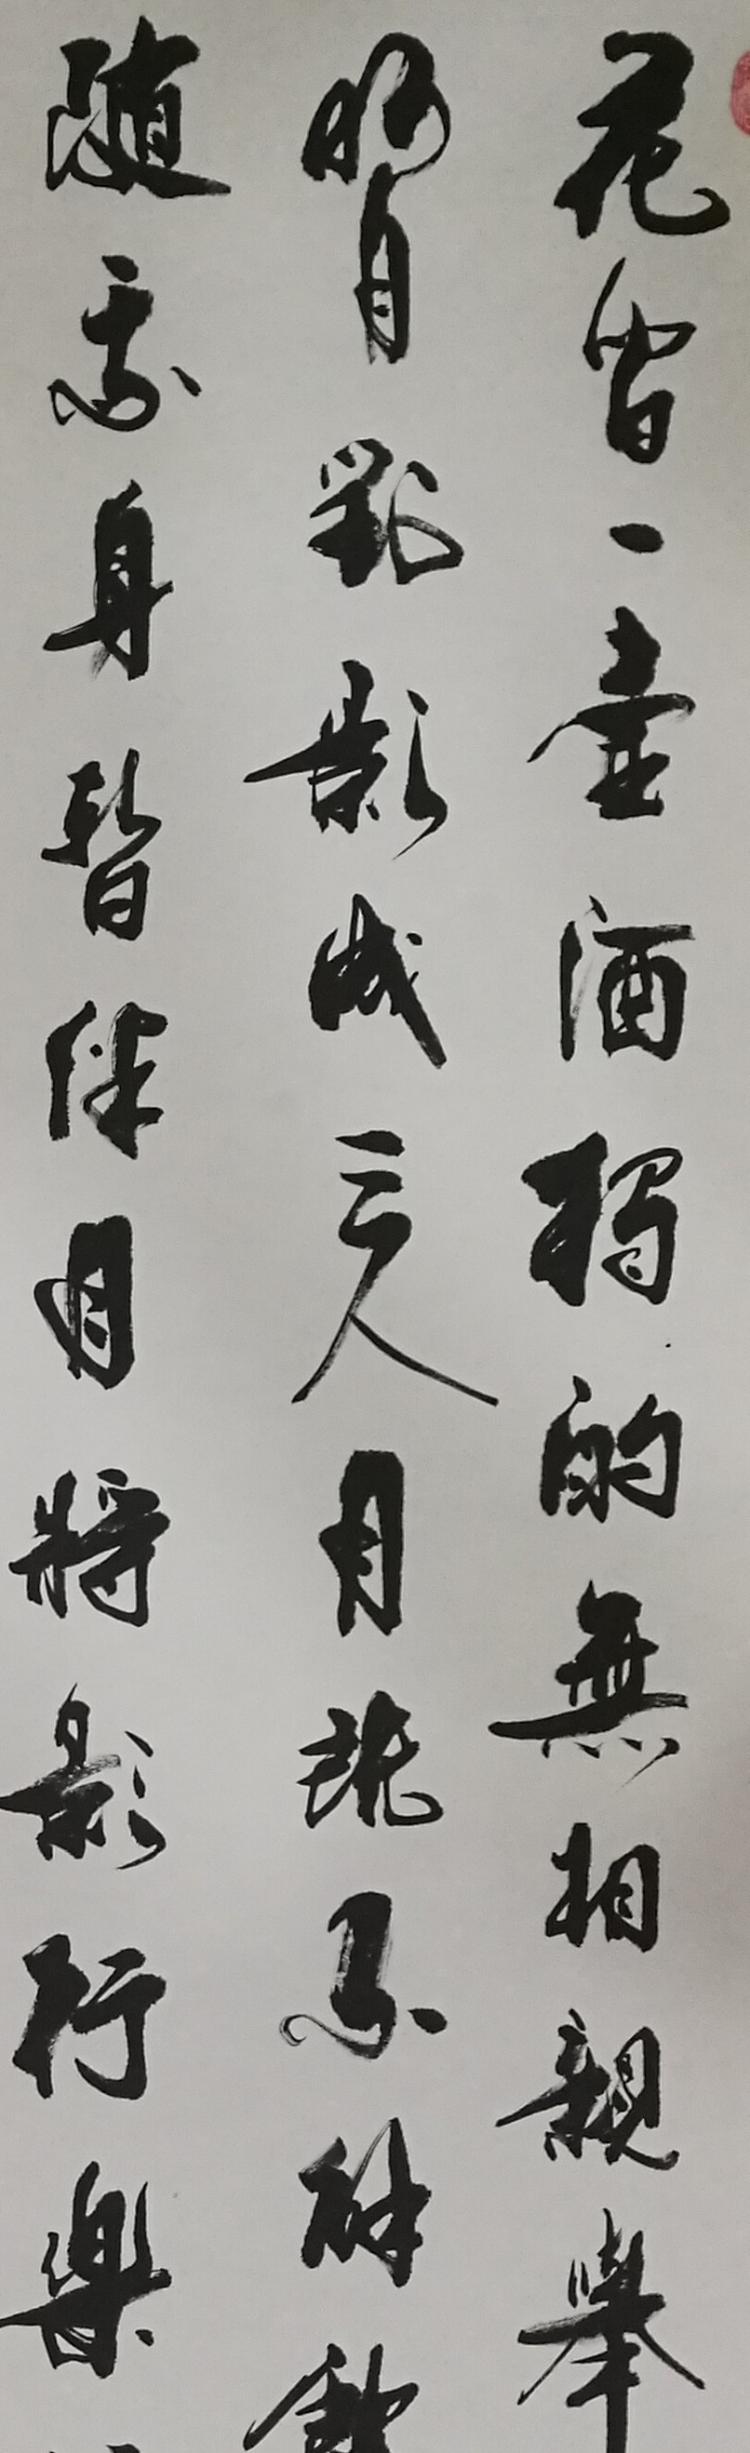 花間一壺酒獨酌無相親舉
明月對影成三人月既不解飲
隨我身暫伴月將影行樂